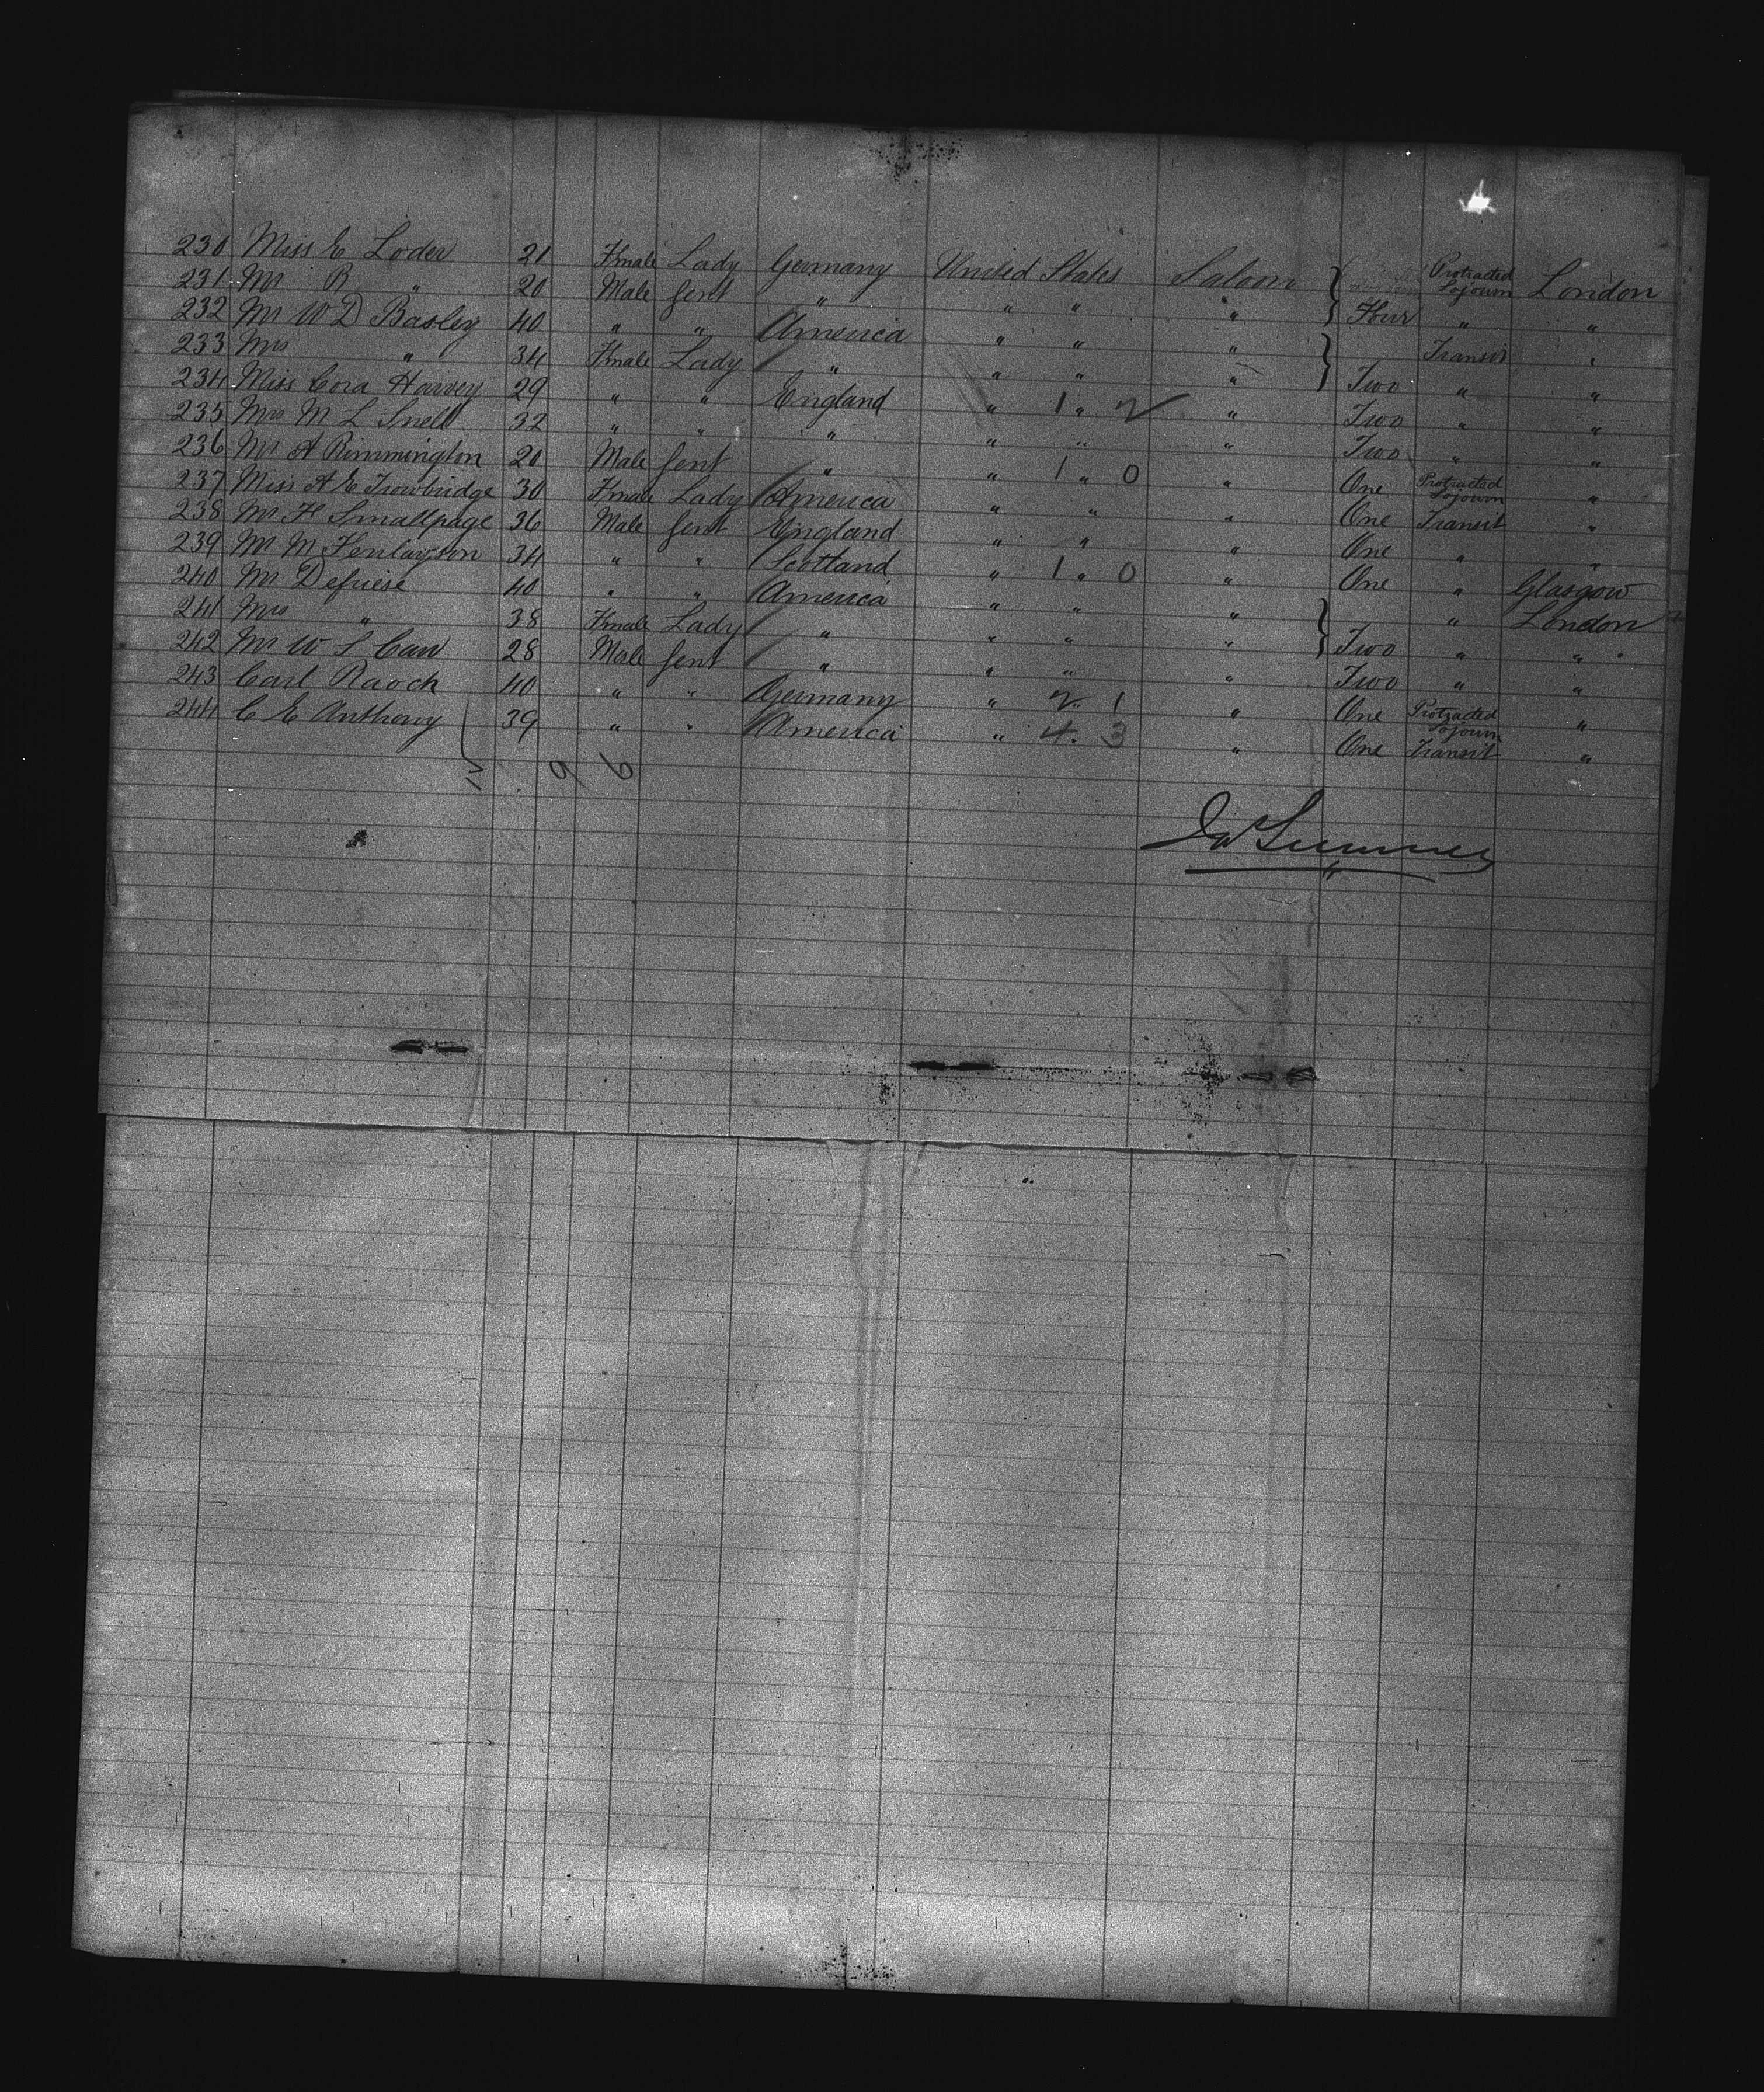 230 Miss E Loder 21 Fmale Lady Germany United States Saloon } Protracted Sojourn London
231 Mr R " 20 Male Gent " " " " Four " "
232 Mr W D Basley 40 " " America " " " } Transit "
233 Mrs " 34 Fmale Lady " " " " Two " "
234 Miss Cora Harvey 29 " " England " 1 " 2 " Two " "
235 Mrs M L Snell 32 " " " " " " Two " "
236 Mr A Rimmington 20 Male Gent " " 1 " 0 " One Protracted Sojourn "
237 Miss A E Trowbridge 30 Fmale Lady America " " " One Transit "
238 Mr F Smallpage 36 Male Gent England " " " One " "
239 Mr M Fenlayson 34 " " Scotland " 1 " 0 " One " Glasgow
240 Mr Defriese 40 " " America " " " } " London
241 Mrs " 38 Fmale Lady " " " " Two " "
242 Mr W S Caw 28 Male Gent " " " " Two " "
243 Carl Raoch 40 " " Germany " 2 " 1 " One Protracted Sojourn "
244 C E Anthony 39 " " America " 4 " 3 " One Transit "
9 6